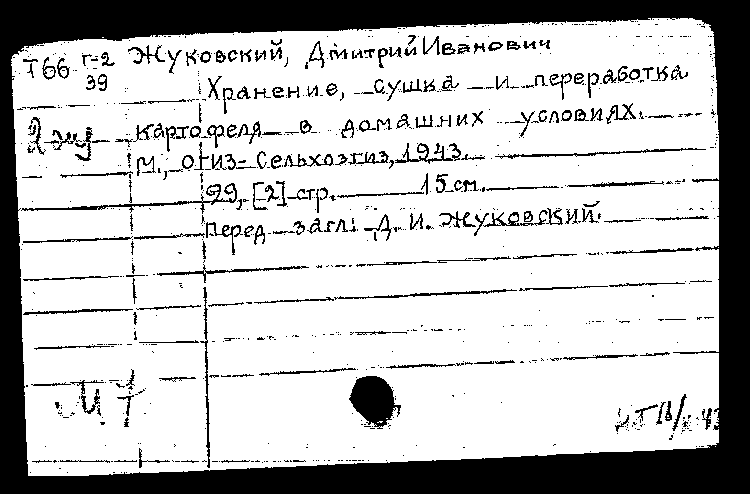 Т66 Г-2 Жуковский, Дмитрий Иванович
39
Хранение, сушка и переработка
2 экз картофеля в домашних условиях.
М., ОГИЗ-Сельхозгиз, 1943.
29, [2] стр. 15 см.
Перед загл: Д. И. Жуковский.
М 7